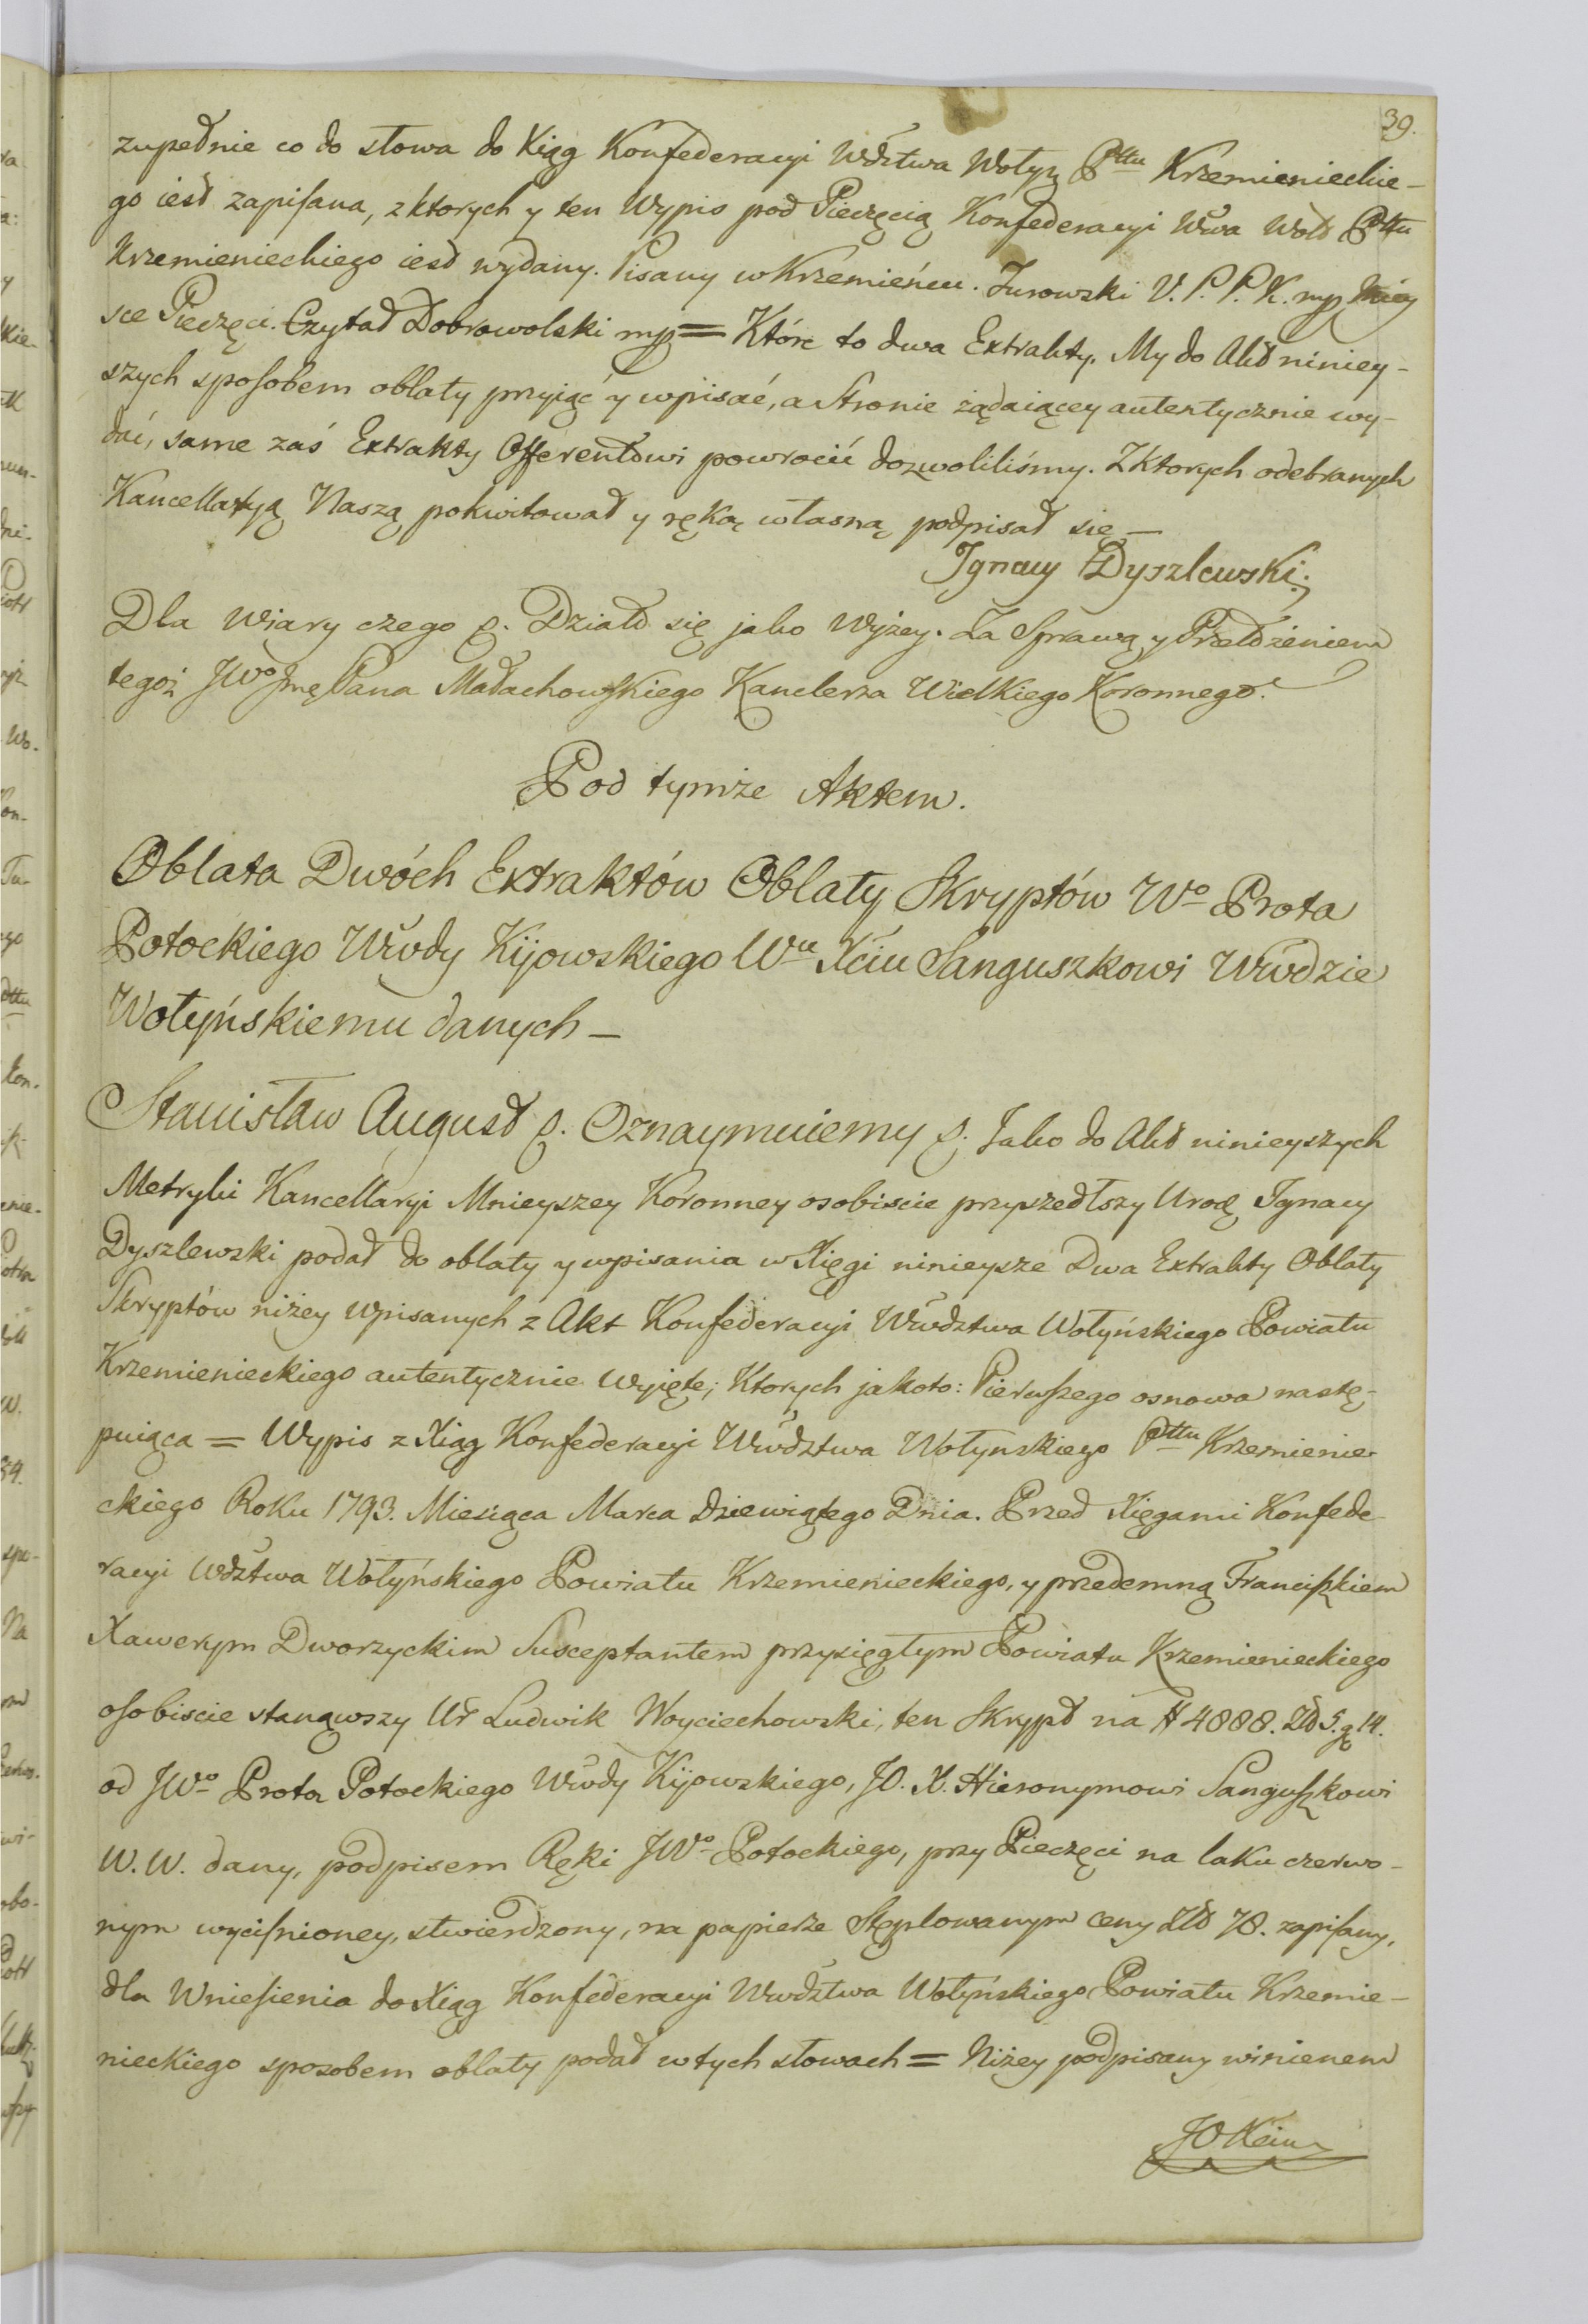 39.
zupełnie co do słowa do Xiąg Konfederacyi Wdztwa Wołyn Pttu Krzemienieckie-
go iest zapisana, z ktorych y ten Wypis pod Pieczęcią Konfederacyi Wwa Woł Pttu
Krzemienieckiego iest wydany. Pisany w Krzemieńcu. Jurowski V. P. P. K. mp Miey
sce Pieczęci. Czytał Dobrowolski mp = Które to dwa Extrakty. My do Akt niniey-
szych sposobem oblaty przyiąć y wpisać, a Stronie żądaiącey autentycznie wy-
dać, same zaś Extrakty Offerentowi powrocić dozwoliliśmy. Z Ktorych odebranych
Kancellaryą Naszą pokwitował y ręką własną podpisał się —
Ignacy Dyszlewski.
Dla Wiary czego p. Działo się jako Wyżey. Za Sprawą y Przełożeniem
tegoż JWo Jmę Pana Małachowskiego Kanclerza Wielkiego Koronnego.
Pod tymże Aktem.
Oblata Dwóch Extraktów Oblaty Skryptów Wo Prota
Potockiego Wwdy Kijowskiego Wu Xciu Sanguszkowi Wwdzie
Wołyńskiemu danych —
Stanisław August p. Oznaymuiemy p. Jako do Akt ninieyszych
Metryki Kancellaryi Mnieyszey Koronney osobiscie przyszedłszy Urodz Ignacy
Dyszlewski podał do oblaty y wpisania w Xięgi ninieysze Dwa Extrakty Oblaty
Skryptów niżey wpisanych z Akt Konfederacyi Wwdztwa Wołyńskiego Powiatu
Krzemienieckiego autentycznie wyięte; Ktorych jakoto: Pierwszego osnowa nastę-
puiąca = Wypis z Xiąg Konfederacyi Wwdztwa Wołynskiego Pttu Krzemienie-
ckiego Roku 1793. Miesiąca Marca dziewiątego Dnia. Przed Xięgami Konfede-
racyi Wdztwa Wołyńskiego Powiatu Krzemienieckiego, y przedemną Franciszkiem
Xawerym Dworzyckim Susceptantem przysięgłym Powiatu Krzemienieckiego
osobiscie stanąwszy Ur Ludwik Woyciechowski, ten Skrypt na # 4888. Zł 5. g 14.
od JWo Prota Potockiego Wwdy Kijowskiego, JO. X. Hieronymowi Sanguszkowi
W. W. dany, podpisem Ręki JWo Potockiego, przy Pieczęci na laku czerwo-
nym wycisnioney, stwierdzony, na papierze Stęplowanym ceny Złł 70. zapisany,
dla Wniesienia do Xiąg Konfederacyi Wwdztwa Wołyńskiego Powiatu Krzemie-
nieckiego sposobem oblaty podał w tych słowach = Niżey podpisany winienem
JO Xciu